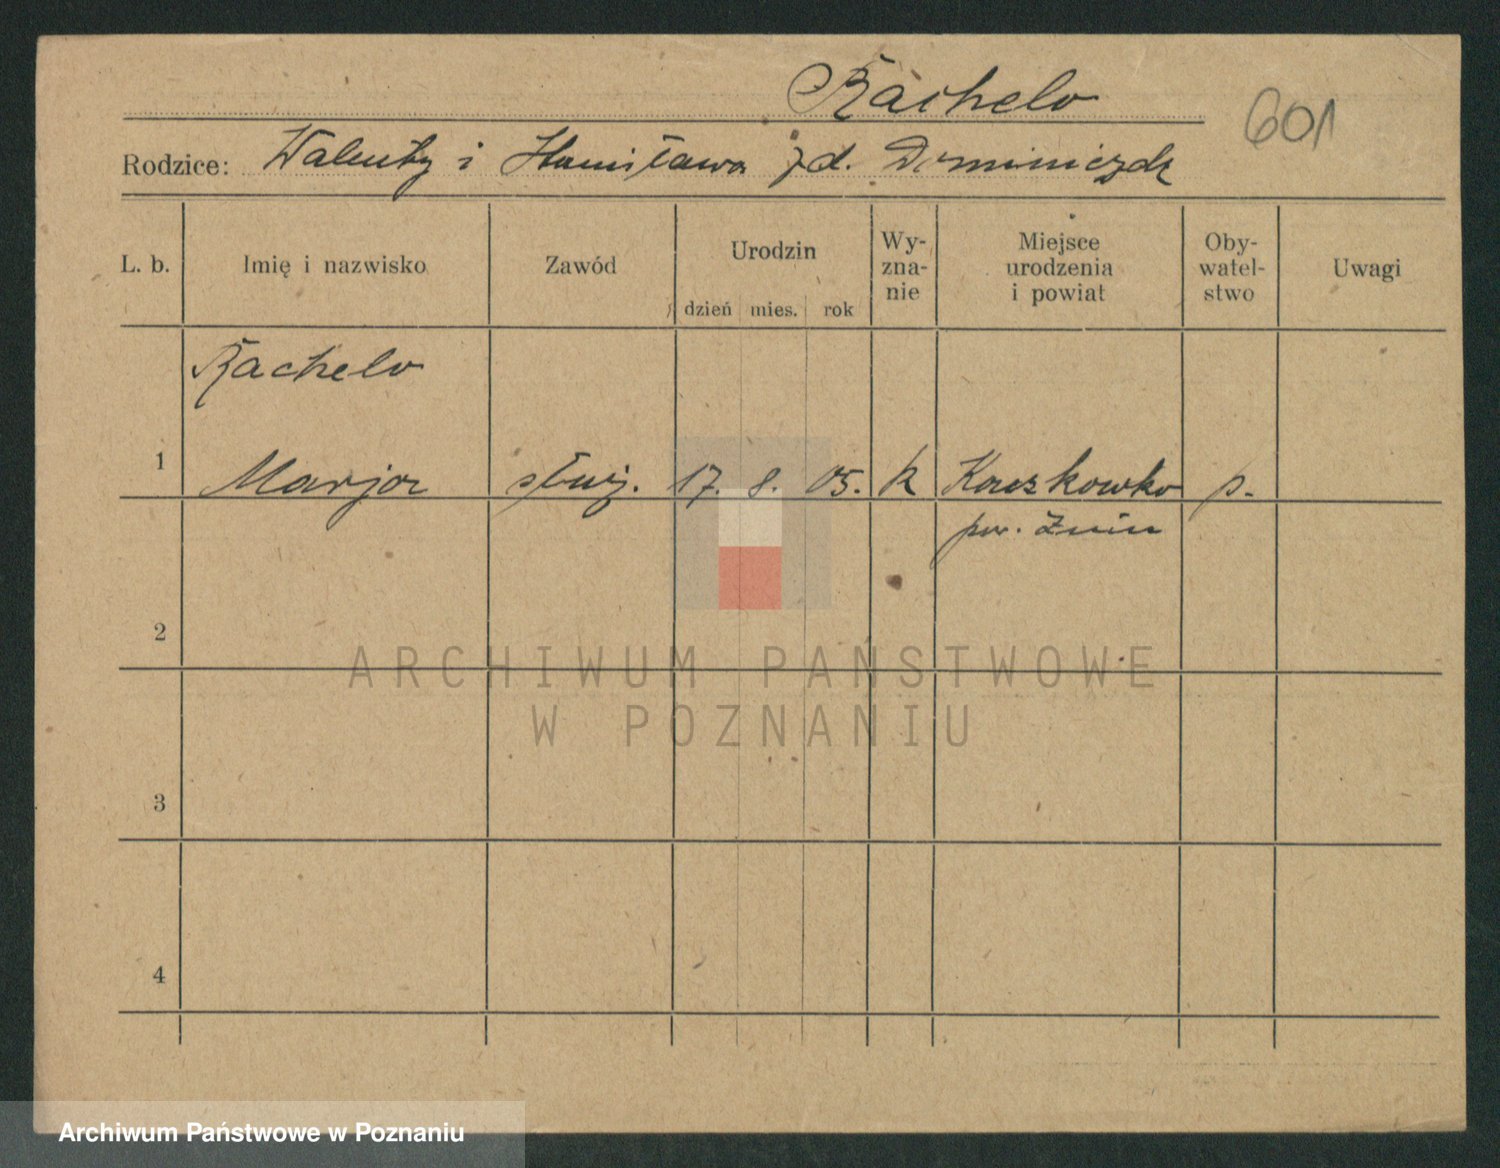 Rachelv
601
Rodzice: Walenty i Stanisława zd. Dominiczak
L. b. Imię i nazwisko Zawód Urodzin dzień mies. rok Wy-zna-nie Miejsce urodzenia i powiat Oby-watel-stwo Uwagi
Rachelv
1 Marja służ. 17. 8. 05. k Kaczkowko p.
pow. Żnin
2
ARCHIWUM PAŃSTWOWE
W POZNANIU
3
4
Archiwum Państwowe w Poznaniu